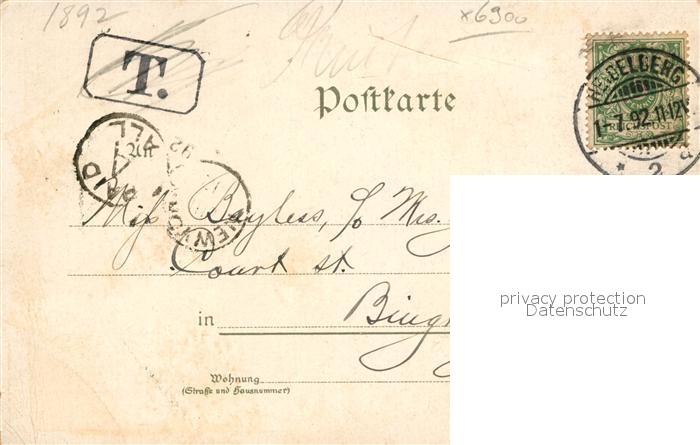 1892
x6900
T.
Postkarte
HEIDELBERG
1-7.92.11-12V
REICHSPOST
* 2
PAID
ALL
An
92
NEW YORK
Miss Bayless, c/o Mrs.
Court st.
in Bing
Wohnung
(Straße und Hausnummer)
privacy protection
Datenschutz